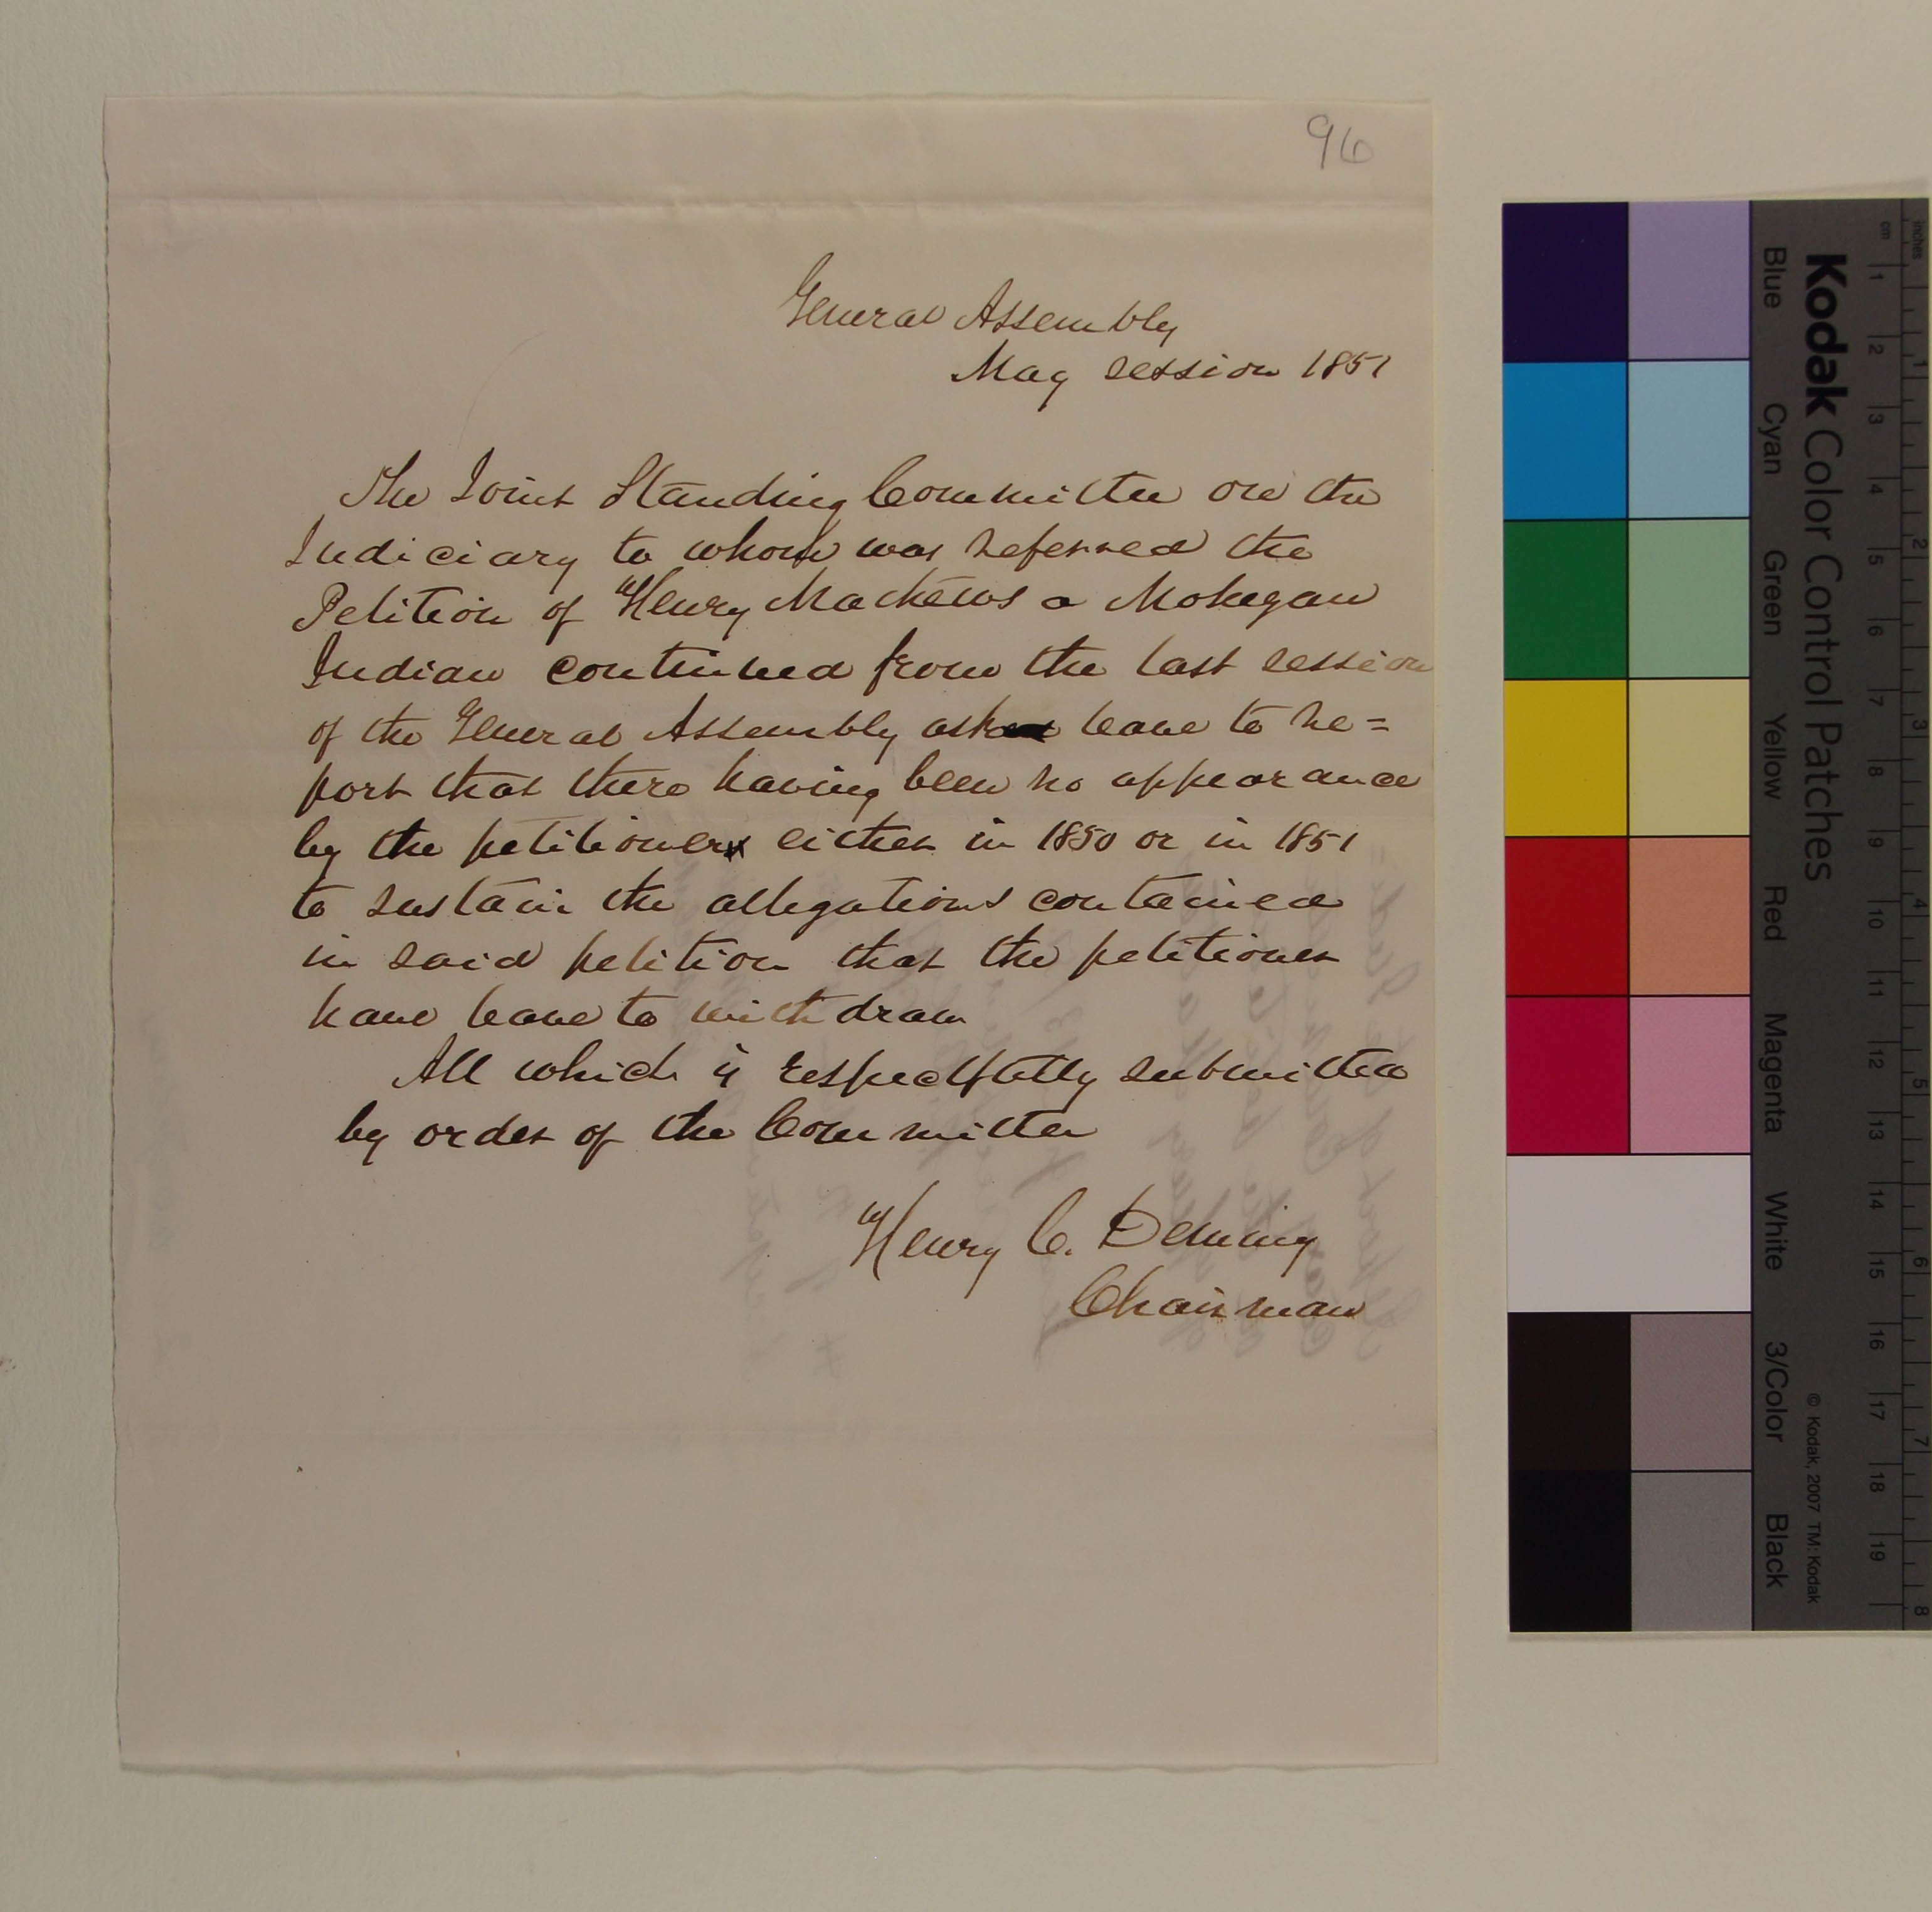 96
General Assembly
May session 1851
The Joint Standing Committee on the
Judiciary to whom was referred the
Petition of Henry Mathews a Mohegan
Indian continued from the last session
of the General Assembly ask leave to re=
port that there having been no appearance
by the petitioner either in 1850 or in 1851
to sustain the allegations contained
in said petition that the petitioner
have leave to withdraw
All which is respectfully submitted
by order of the Committee
Henry C. Deming
Chairman
Kodak Color Control Patches
Blue Cyan Green Yellow Red Magenta White 3/Color Black
© Kodak, 2007 TM: Kodak
cm 1 2 3 4 5 6 7 8 9 10 11 12 13 14 15 16 17 18 19
inches 1 2 3 4 5 6 7 8